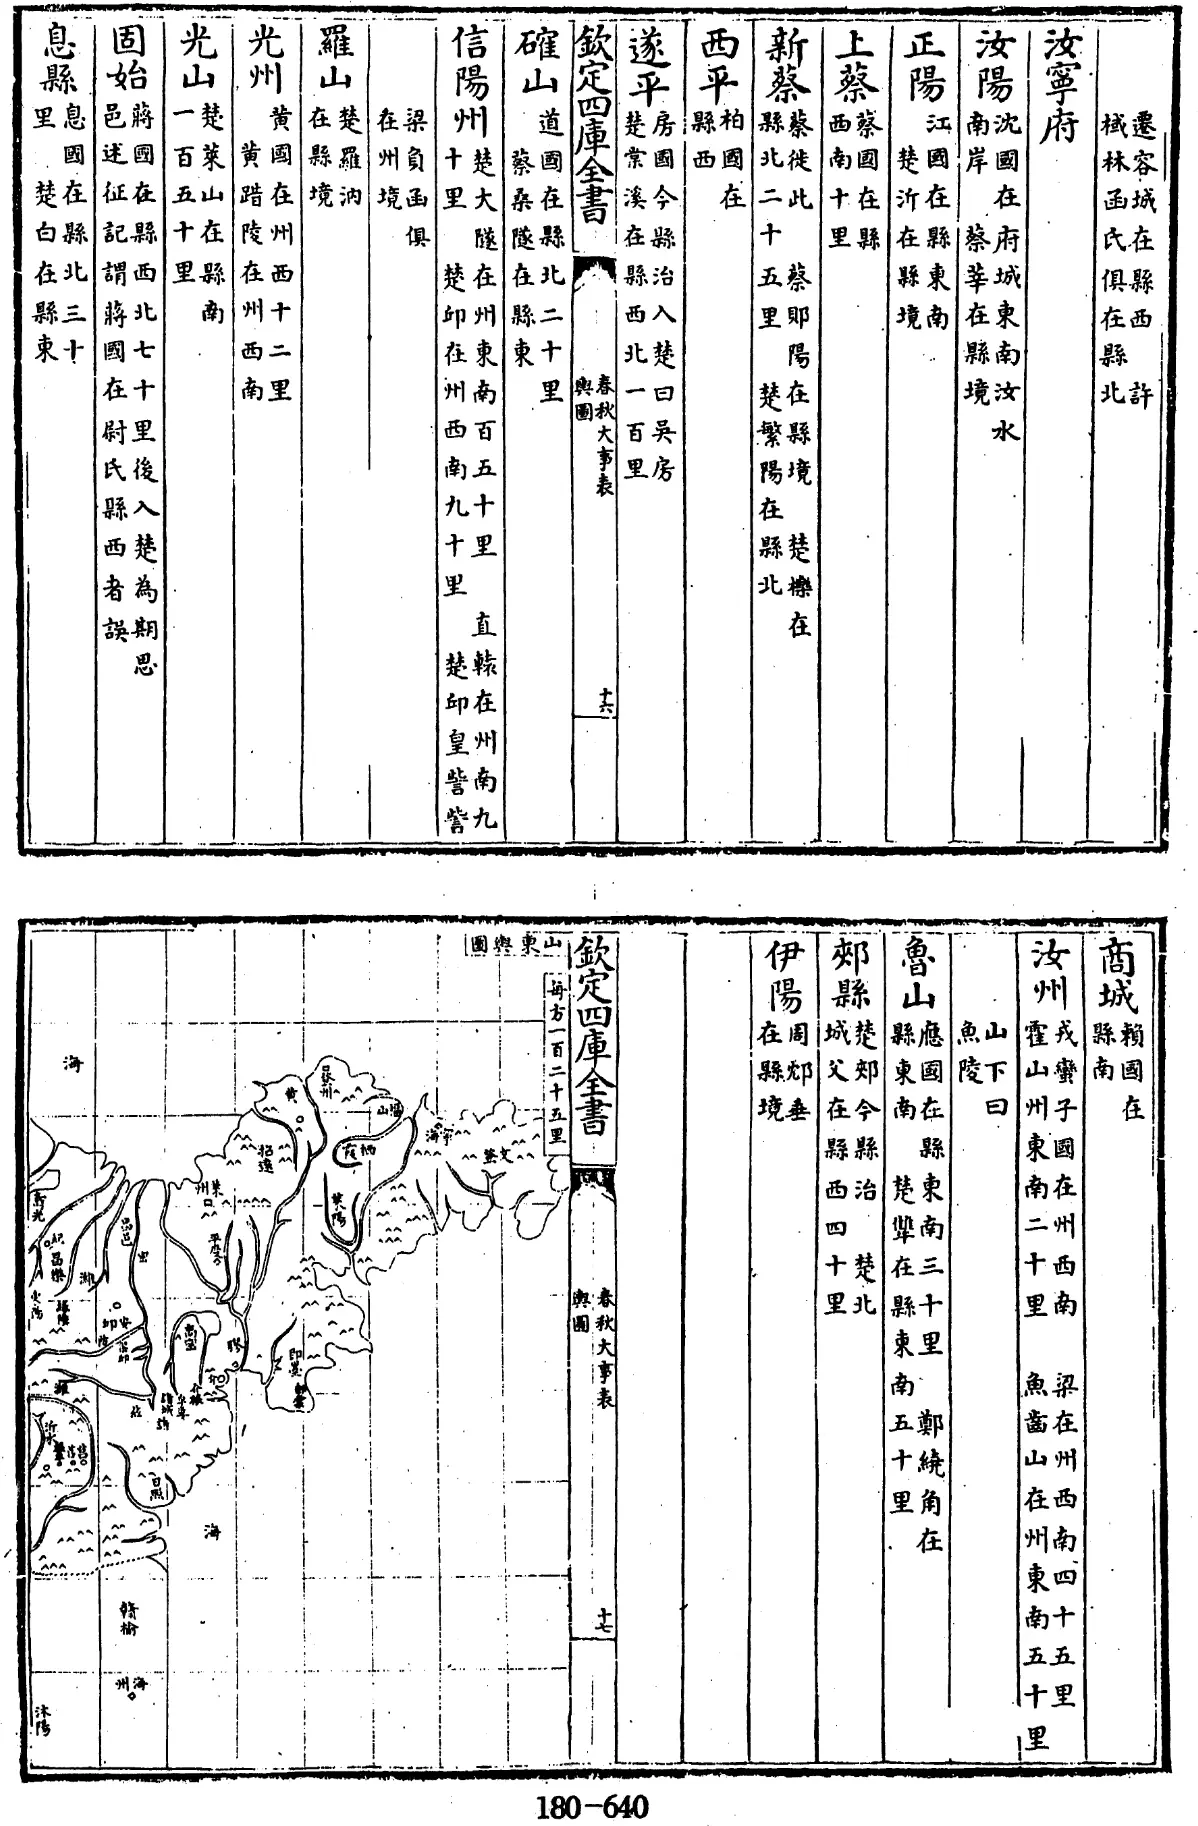 遷容城在縣西　許
棫林函氏俱在縣北
汝寧府
汝陽
沈國在府城東南汝水
南岸　蔡莘在縣境
正陽
江國在縣東南
楚沂在縣境
上蔡
蔡國在縣
西南十里
新蔡
蔡徙此　蔡郹陽在縣境　楚櫟在
縣北二十五里　楚繁陽在縣北
西平
柏國在
縣西
遂平
房國今縣治入楚曰吳房
楚棠溪在縣西北一百里
欽定四庫全書
春秋大事表
輿圖
十六
確山
道國在縣北二十里
蔡桑隧在縣東
信陽州
楚大隧在州東南百五十里　直轅在州南九
十里　楚邱在州西南九十里　楚邱皇訾訾
梁負函俱
在州境
羅山
楚羅汭
在縣境
光州
黃國在州西十二里
黃踖陵在州西南
光山
楚萊山在縣南
一百五十里
固始
蔣國在縣西北七十里後入楚為期思
邑述征記謂蔣國在尉氏縣西者誤
息縣
息國在縣北三十
里　楚白在縣東
商城
賴國在
縣南
汝州
戎蠻子國在州西南　梁在州西南四十五里
霍山州東南二十里　魚齒山在州東南五十里
山下曰
魚陵
魯山
應國在縣東南三十里　鄭繞角在
縣東南　楚犨在縣東南五十里
郟縣
楚郟今縣治　楚北
城父在縣西四十里
伊陽
周郊垂
在縣境
欽定四庫全書
春秋大事表
輿圖
十七
山東輿圖
每方一百二十五里
海
黃
福山
寧海
文登
棲霞
招遠
萊陽
萊州
平度
壽光
紀
昌樂
昌邑
濰
安邱
高密
膠
即墨
諸城
沂水
莒
日照
海
贛榆
海州
沭陽
180-640